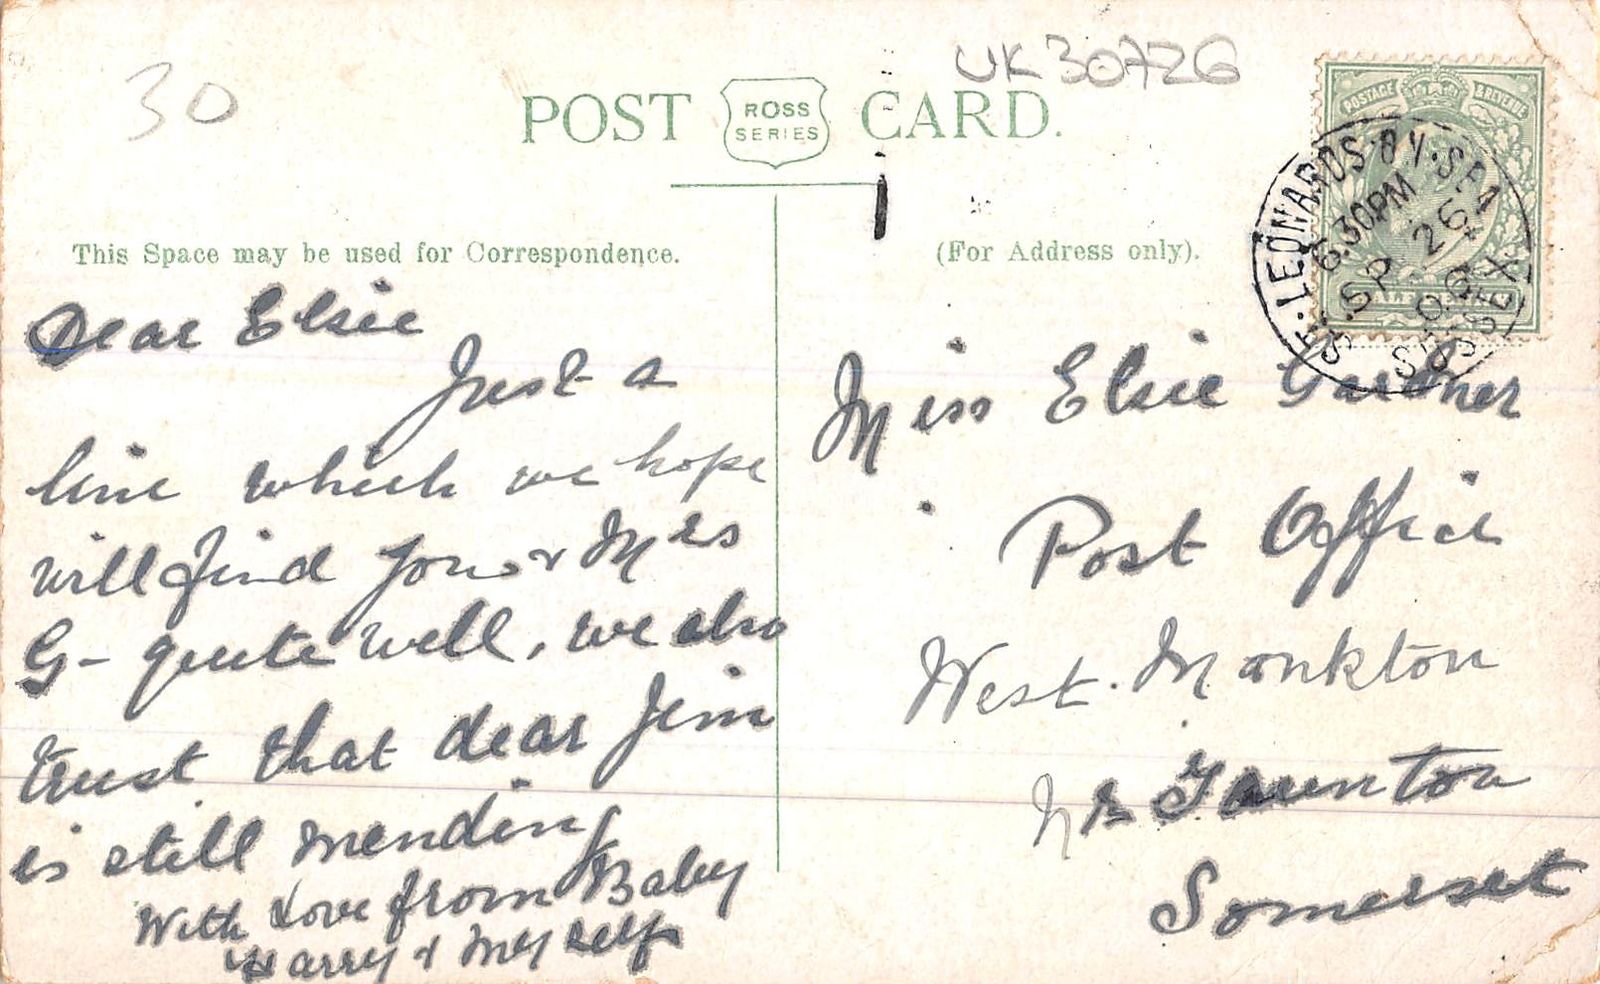 30
UK 30726
POST ROSS SERIES CARD.
This Space may be used for Correspondence.
(For Address only).
POSTAGE & REVENUE
ST. LEONARDS-BY-SEA
6.30PM
SP 26
06
SUSSEX
Dear Elsie
Just a
line which we hope
will find you & Mrs
G- quite well, we also
trust that dear Jim
is still mending
With Love from Baby
Harry & myself
Miss Elsie Gardner
Post Office
West. Monkton
Nr Taunton
Somerset